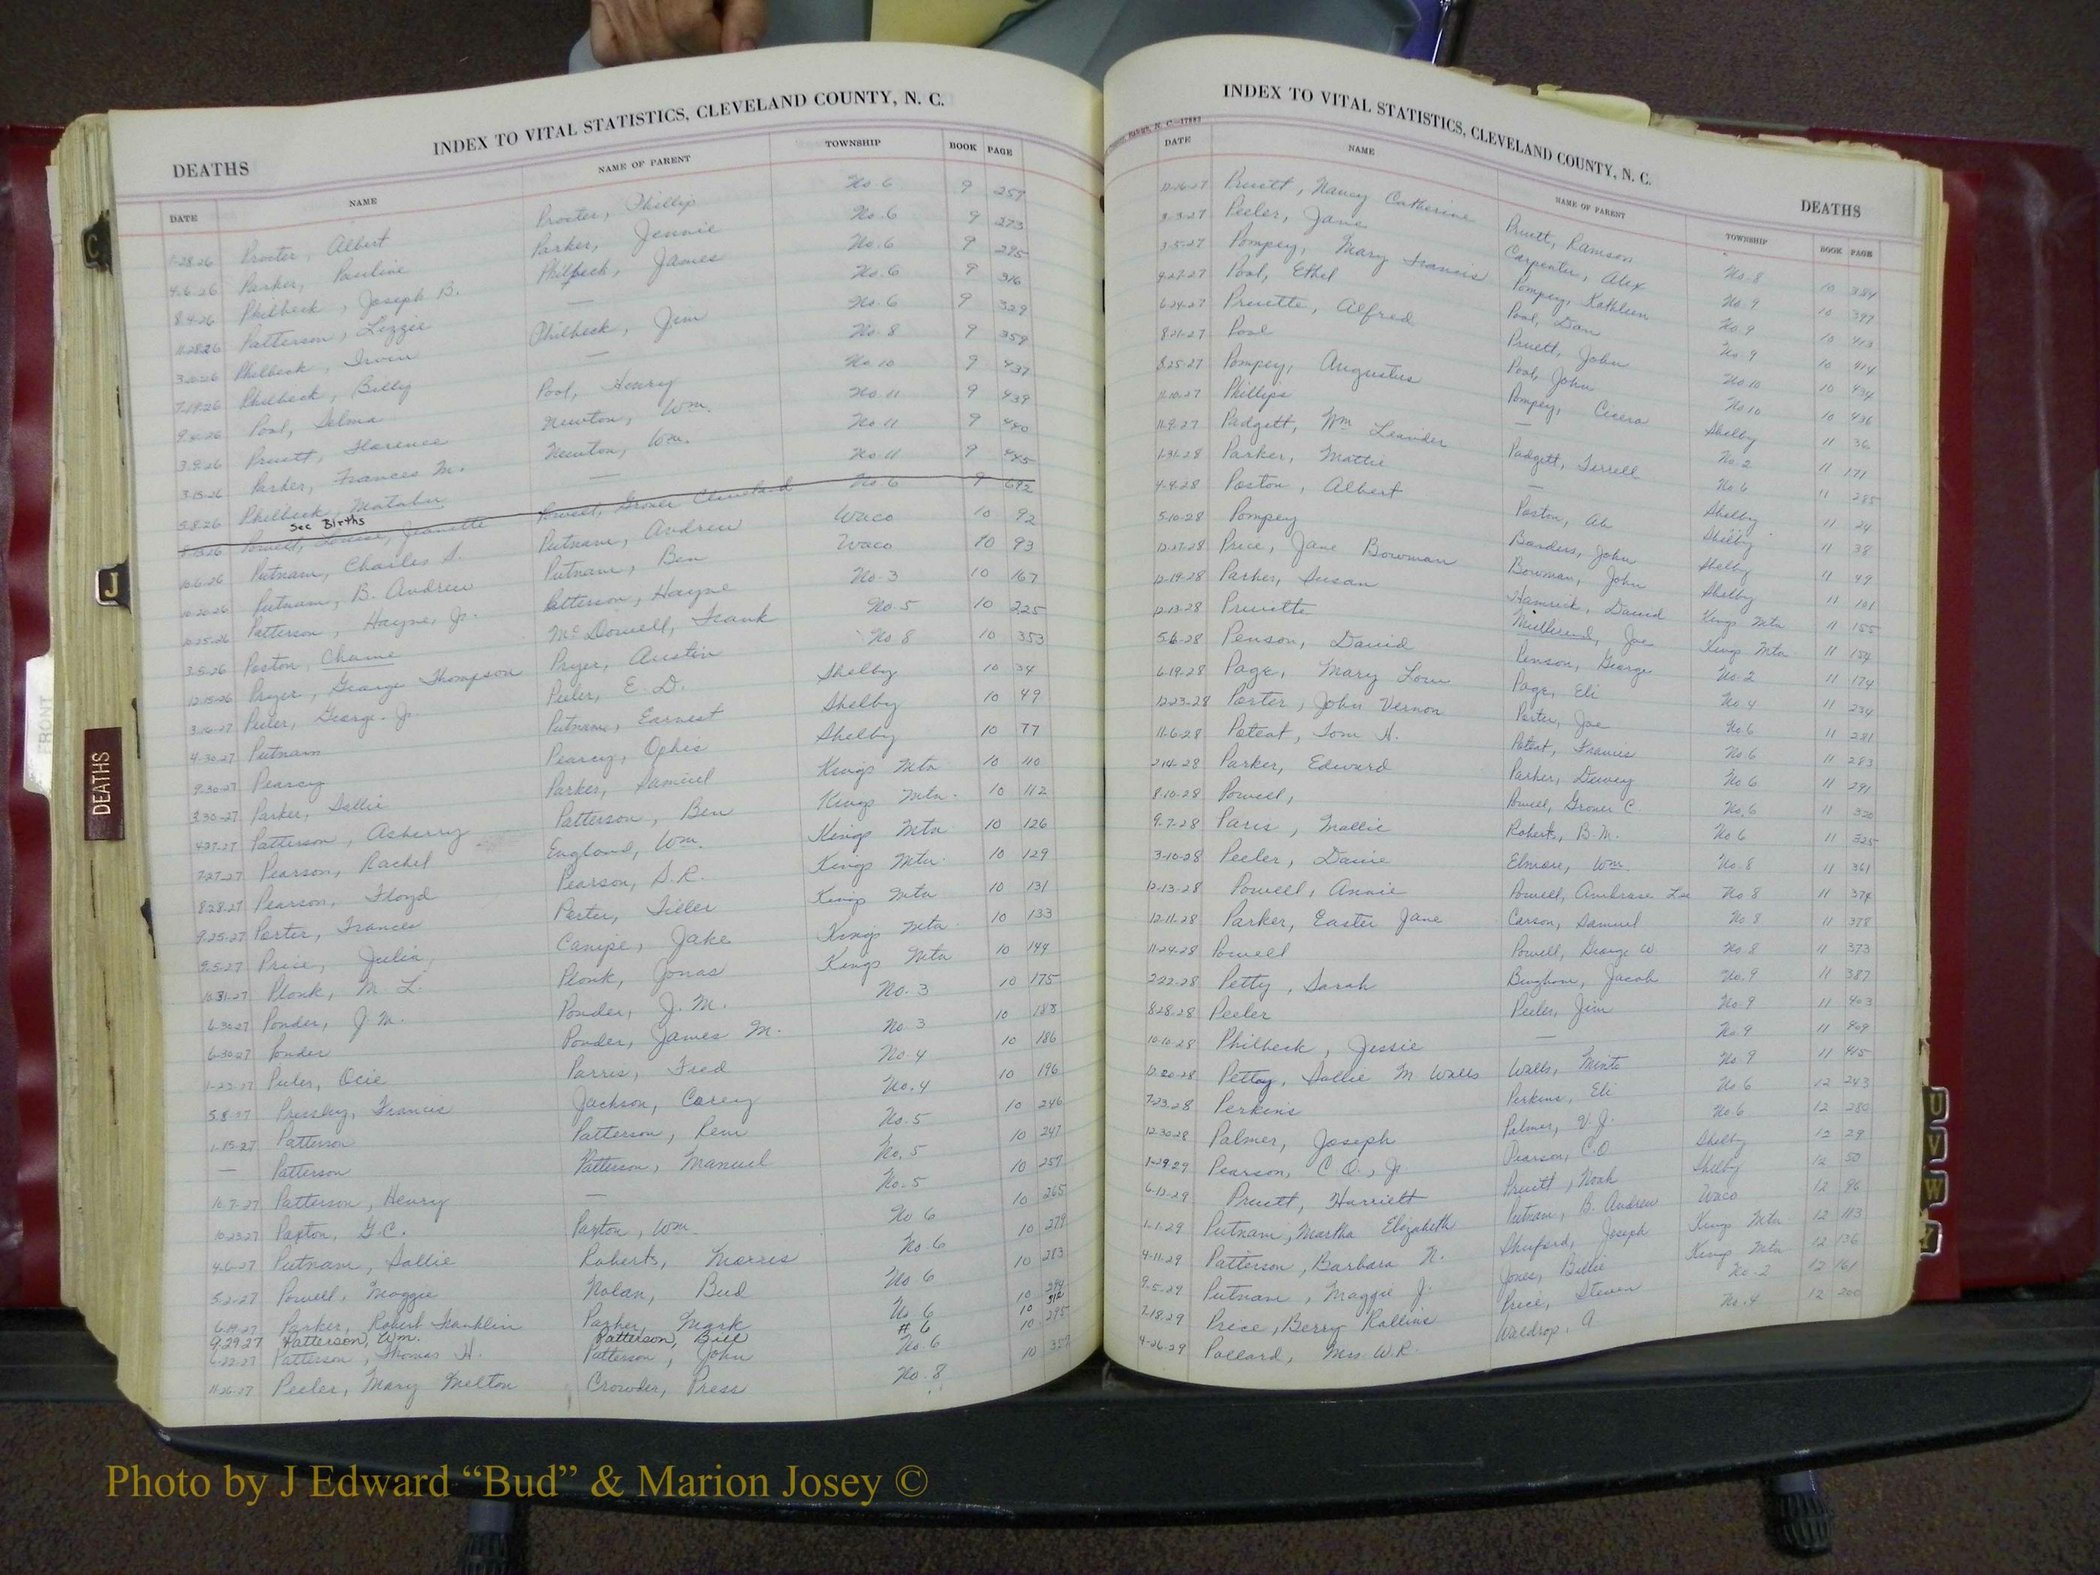 INDEX TO VITAL STATISTICS, CLEVELAND COUNTY, N. C.
DEATHS
DATE NAME NAME OF PARENT TOWNSHIP BOOK PAGE
1-28-26 Procter, Albert Procter, Phillip No. 6 9 257
4-6-26 Parker, Pauline Parker, Jennie No. 6 9 273
8-4-26 Philbeck, Joseph B. Philbeck, James No. 6 9 295
11-28-26 Patterson, Lizzie — No. 6 9 316
3-20-26 Philbeck, Irvin Philbeck, Jim No. 6 9 329
7-19-26 Philbeck, Billy — No. 8 9 359
Pool, Selma Pool, Henry No. 10 9 437
3-9-26 Pruett, Florence Newton, Wm. No. 11 9 439
3-15-26 Parker, Frances M. Newton, Wm. No. 11 9 440
5-8-26 Philbeck, — No. 11 9 445
See Births
8-15-26 Powell, Louise, Jeanette Powell, Grover Cleveland No. 6 9 692
10-6-26 Putnam, Charles S. Putnam, Andrew Waco 10 92
10-20-26 Putnam, B. Andrew Putnam, Ben Waco 10 93
10-25-26 Patterson, Hayne, Jr. Patterson, Hayne No. 3 10 167
3-5-26 Poston, Chame McDowell, Frank No. 5 10 225
12-15-26 Pryer, George Thompson Pryer, Austin No. 8 10 353
3-16-27 Peeler, George Jr. Peeler, E. D. Shelby 10 34
4-30-27 Putnam Putnam, Earnest Shelby 10 49
9-30-27 Pearcy Pearcy, Ophis Shelby 10 77
3-30-27 Parker, Sallie Parker, Samuel Kings Mtn 10 110
4-27-27 Patterson, Asberry Patterson, Ben Kings Mtn. 10 112
7-27-27 Pearson, Rachel England, Wm. Kings Mtn 10 126
8-28-27 Pearson, Floyd Pearson, S. R. Kings Mtn. 10 129
9-25-27 Porter, Frances Porter, Tiller Kings Mtn 10 131
9-5-27 Price, Julia, Canipe, Jake Kings Mtn. 10 133
10-31-27 Plonk, M. L. Plonk, Jonas Kings Mtn 10 144
6-30-27 Ponder, J. M. Ponder, J. M. No. 3 10 175
6-30-27 Ponder Ponder, James M. No. 3 10 183
1-23-27 Peeler, Ocie Parris, Fred No. 4 10 186
5-8-27 Pressley, Francis Jackson, Corey No. 4 10 196
1-15-27 Patterson Patterson, Rem No. 5 10 246
— Patterson Patterson, Manuel No. 5 10 247
10-7-27 Patterson, Henry — No. 5 10 257
10-23-27 Paxton, G. C. Paxton, Wm No 6 10 265
4-6-27 Putnam, Sallie Roberts, Morris No. 6 10 279
5-2-27 Powell, Maggie Nolan, Bud No 6 10 283
6-19-27 Parker, Robert Franklin Parker, Mark No. 6 10 294
9-29-27 Patterson, Wm. Patterson, Bill # 6 10 312
6-22-27 Patterson, Thomas H. Patterson, John No. 6 10 295
11-26-27 Peeler, Mary Melton Crowder, Press No. 8 10 357
INDEX TO VITAL STATISTICS, CLEVELAND COUNTY, N. C.
DEATHS
DATE NAME NAME OF PARENT TOWNSHIP BOOK PAGE
12-16-27 Pruett, Nancy Catherine Pruett, Ramson No. 8 10 384
3-3-27 Peeler, Jane Carpenter, Alex No. 9 10 399
3-5-27 Pompey, Mary Francis Pompey, Kathleen No. 9 10 413
9-27-27 Pool, Ethel Pool, Dan No. 9 10 414
6-24-27 Pruette, Alfred Pruett, John No. 10 10 434
8-21-27 Pool Pool, John No. 10 10 436
8-25-27 Pompey, Augustus Pompey, Cicero Shelby 11 36
11-10-27 Phillips — No. 2 11 171
11-9-27 Padgett, Wm Leander Padgett, Terrell No. 6 11 285
1-31-28 Parker, Mattie — Shelby 11 24
4-4-28 Poston, Albert Poston, Ab Shelby 11 38
5-10-28 Pompey Borders, John Shelby 11 49
12-27-28 Price, Jane Bowman Bowman, John Shelby 11 101
12-19-28 Parker, Susan Hamrick, David Kings Mtn 11 155
12-13-28 Pruette Joe Kings Mtn 11 154
5-6-28 Penson, David Penson, George No. 2 11 174
6-19-28 Page, Mary Lou Page, Eli No. 4 11 234
12-23-28 Porter, John Vernon Porter, Joe No. 6 11 281
11-6-28 Poteat, Tom H. Poteat, Francis No 6 11 283
2-14-28 Parker, Edward Parker, Dewey No 6 11 291
8-10-28 Powell, Powell, Grover C. No. 6 11 320
9-7-28 Paris, Mollie Roberts, B. M. No 6 11 325
3-10-28 Peeler, Davie Elmore, Wm. No. 8 11 361
12-13-28 Powell, Annie Powell, Ambrose Lee No 8 11 374
12-11-28 Parker, Easter Jane Carson, Samuel No 8 11 378
11-24-28 Powell Powell, George W No 8 11 373
2-22-28 Petty, Sarah Bingham, Jacob No. 9 11 387
8-28-28 Peeler Peeler, Jim No 9 11 403
10-10-28 Philbeck, Jessie — No. 9 11 409
12-20-28 Pettay, Sallie M Walls Walls, Minto No 9 11 415
7-23-28 Perkins Perkins, Eli No 6 12 243
12-30-28 Palmer, Joseph Palmer, V. J. No. 6 12 280
1-29-29 Pearson, C. O., Jr. Pearson, C. O. Shelby 12 29
6-12-29 Pruett, Harriett Pruett, Noah Shelby 12 50
1-1-29 Putnam, Martha Elizabeth Putnam, B. Andrew Waco 12 96
4-11-29 Patterson, Barbara N. Shuford, Joseph Kings Mtn 12 113
9-5-29 Putnam, Maggie J. Jones, Billie Kings Mtn 12 136
7-18-29 Price, Berry Rollins Price, Steven No. 2 12 161
4-26-29 Pollard, Mrs. W. R. Waldrop, A No. 4 12 200
C
J
DEATHS
FRONT
U
V
W
Y
Photo by J Edward “Bud” & Marion Josey ©